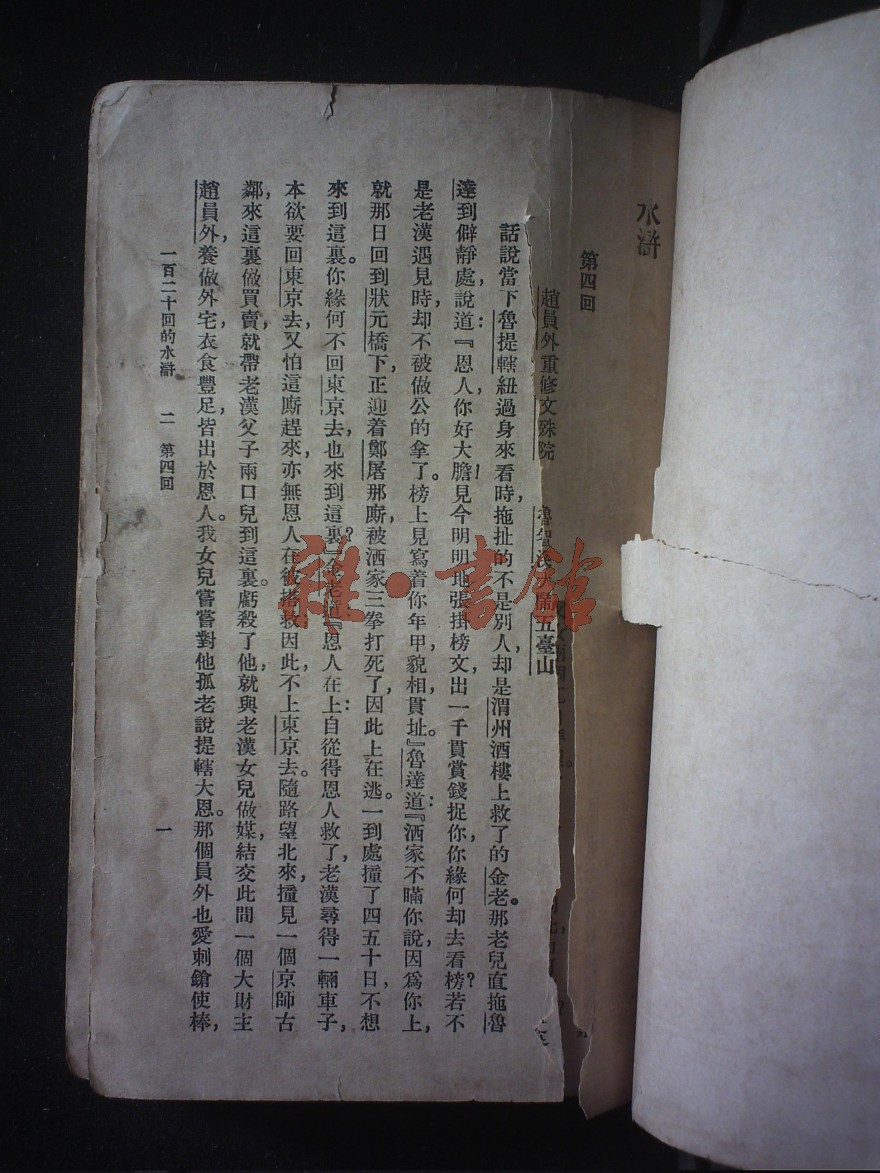 水滸
第四回
趙員外重修文殊院 魯智深 鬧五臺山
話說當下魯提轄紐過身來看時,拖扯的不是別人,却是渭州酒樓上救了的金老。那老兒直拖魯
達到僻靜處,說道:『恩人,你好大膽!見今明明地張掛榜文,出一千貫賞錢捉你,你緣何却去看榜?若不
是老漢遇見時,却不被做公的拿了。榜上見寫着你年甲,貌相,貫址。』魯達道:『洒家不瞞你說,因爲你上,
就那日回到狀元橋下,正迎着鄭屠那廝,被洒家三拳打死了,因此上在逃。一到處撞了四五十日,不想
來到這裏。你緣何不回東京去,也來到這裏?』金老道:『恩人在上:自從得恩人救了,老漢尋得一輛車子,
本欲要回東京去,又怕這廝趕來,亦無恩人在彼搭救,因此不上東京去。隨路望北來,撞見一個京師古
鄰,來這裏做買賣,就帶老漢父子兩口兒到這裏。虧殺了他,就與老漢女兒做媒,結交此間一個大財主
趙員外,養做外宅,衣食豐足,皆出於恩人。我女兒嘗嘗對他孤老說提轄大恩。那個員外也愛刺鎗使棒,
一百二十回的水滸 二 第四回 一
雜·書館